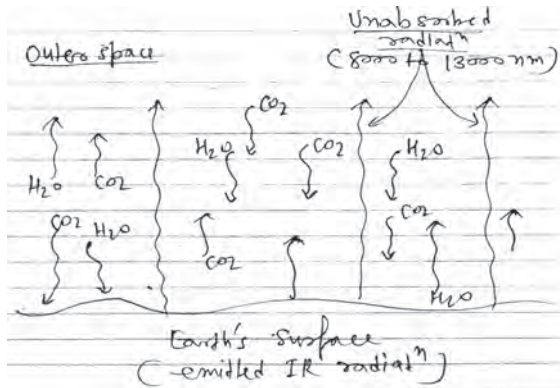 Unabsorbed
radiatⁿ
Outer space
(8000 to 13000 nm)
CO2
H2O
CO2
H2O
H2O
CO2
CO2
H2O
CO2
CO2
H2O
Earth's Surface
(emitted IR radiatⁿ)